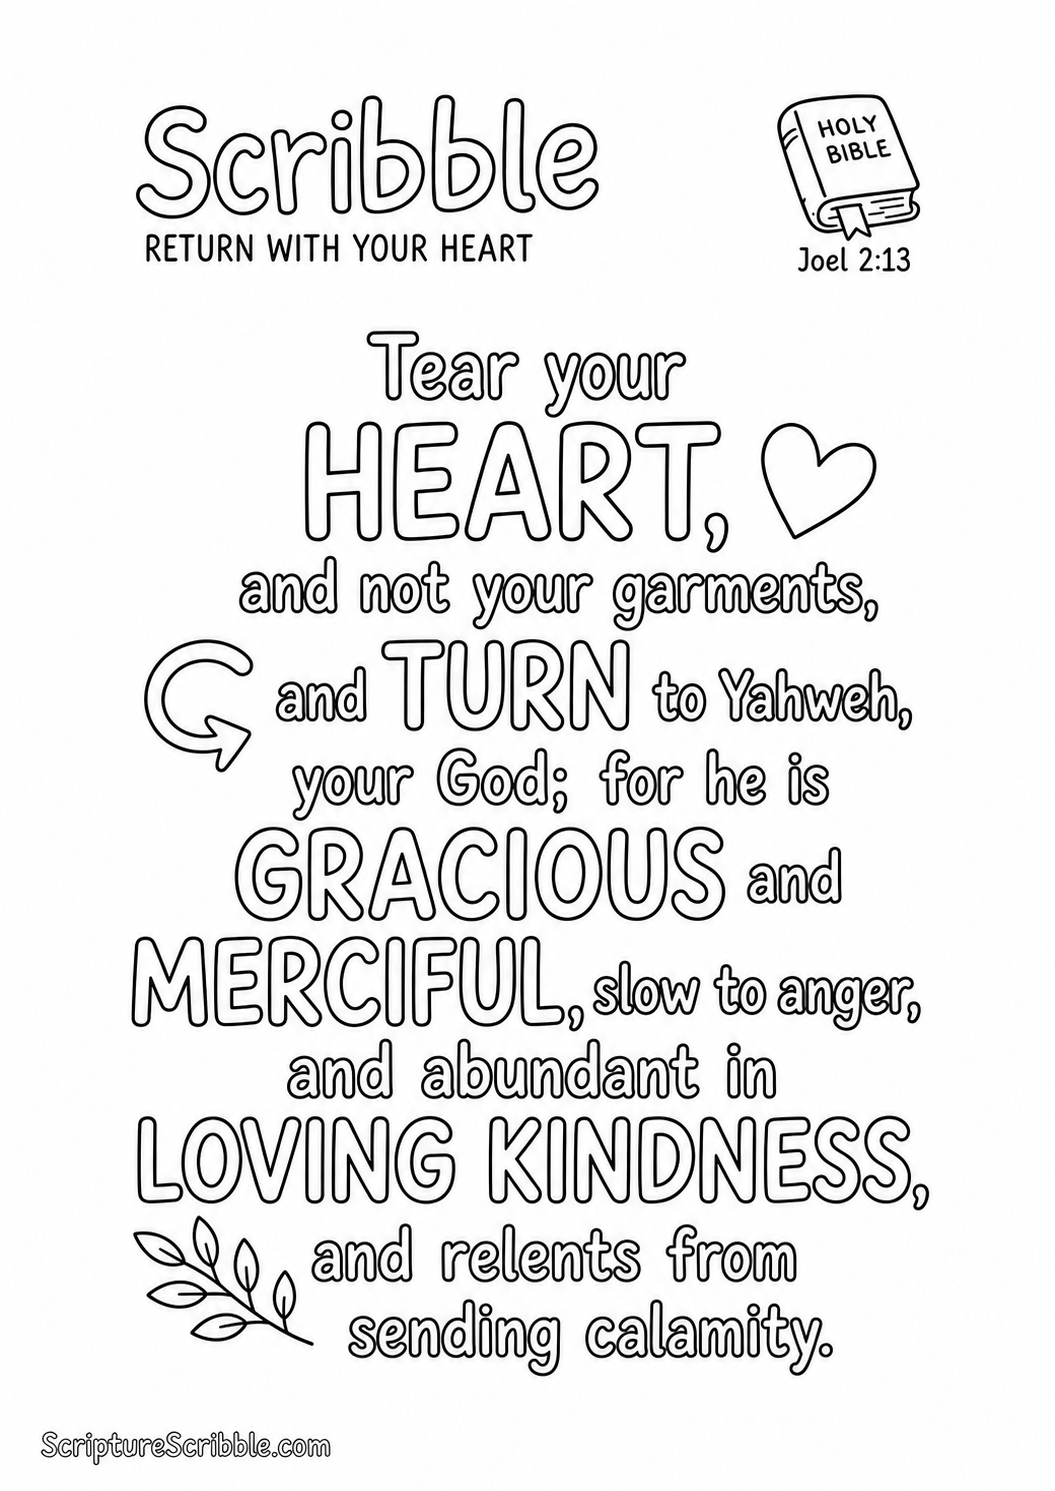 Scribble
RETURN WITH YOUR HEART
HOLY
BIBLE
Joel 2:13
Tear your
HEART,
and not your garments,
and TURN to Yahweh,
your God; for he is
GRACIOUS and
MERCIFUL, slow to anger,
and abundant in
LOVING KINDNESS,
and relents from
sending calamity.
ScriptureScribble.com